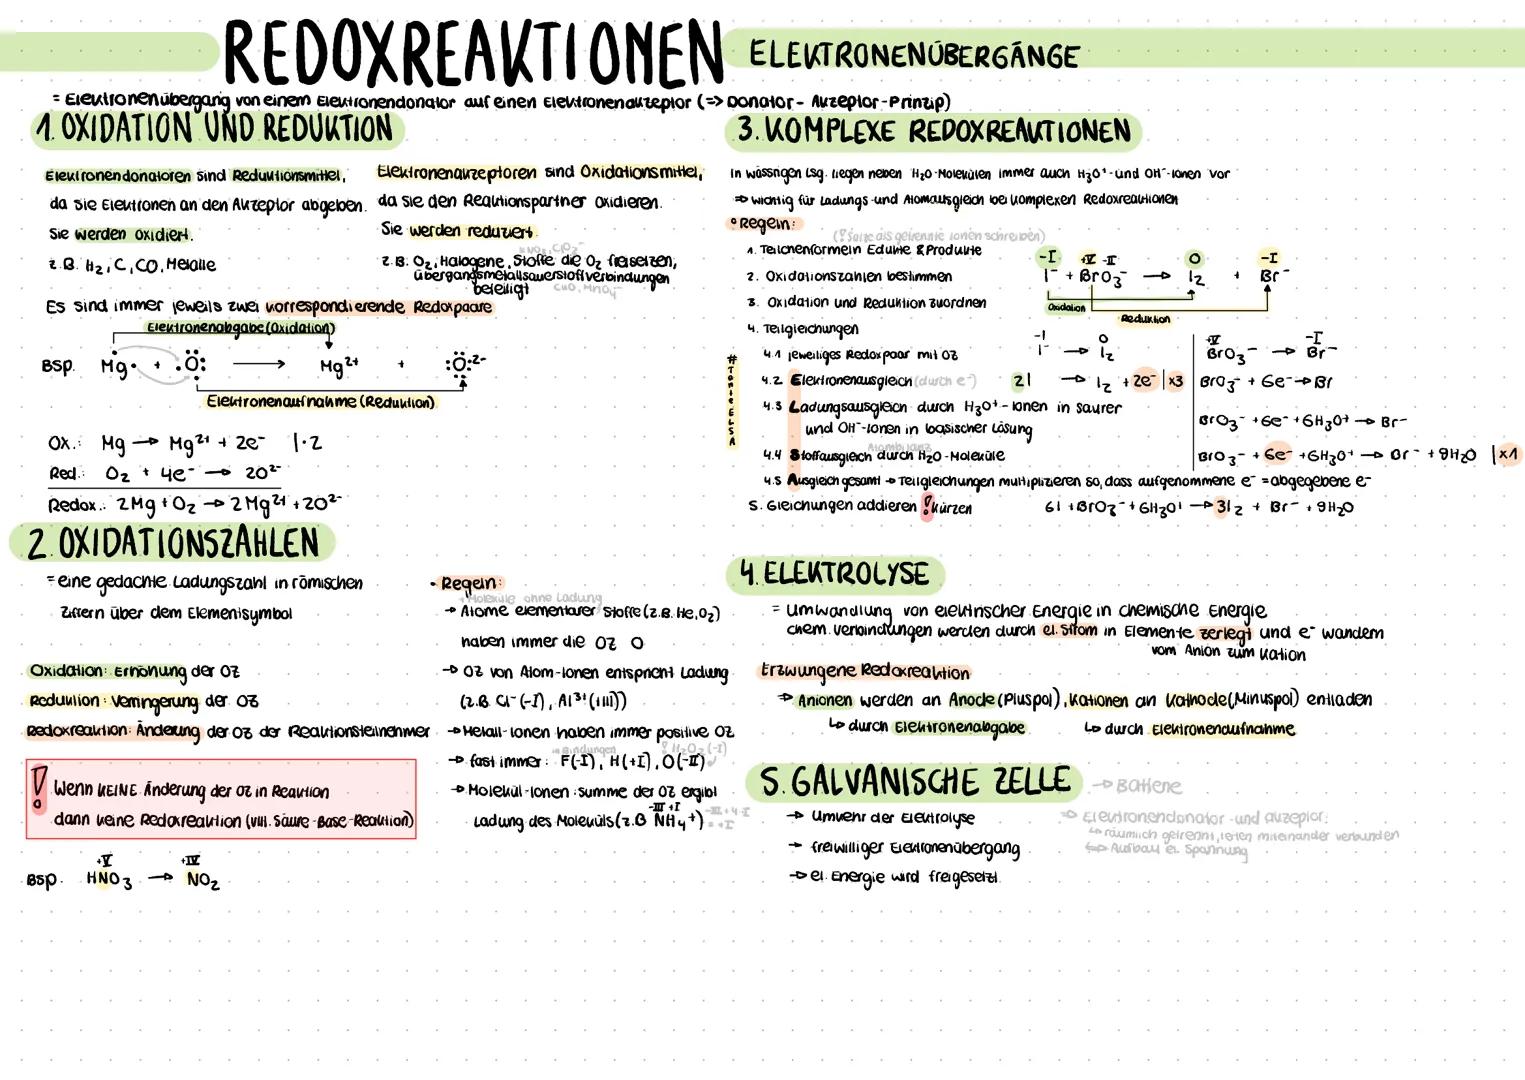 REDOXREAKTIONEN ELEKTRONENÜBERGÄNGE
= Elektronenübergang von einem Elektronendonator auf einen Elektronenakzeptor (=> Donator-Akzeptor-Prinzip)
1. OXIDATION UND REDUKTION
Elektronendonatoren sind Reduktionsmittel,
da sie Elektronen an den Akzeptor abgeben.
Sie werden oxidiert.
z.B. H₂, C, CO, Metalle
Elektronenakzeptoren sind Oxidationsmittel,
da sie den Reaktionspartner oxidieren.
Sie werden reduziert.
z.B. O₂, Halogene, Stoffe die O₂ freisetzen,
Übergangsmetallsauerstoffverbindungen
beteiligt CuO, MnO₄⁻
Es sind immer jeweils zwei korrespondierende Redoxpaare
Elektronenabgabe (Oxidation)
BSP. Mg + O → Mg²⁺ + O²⁻
Elektronenaufnahme (Reduktion)
Ox.: Mg → Mg²⁺ + 2e⁻ |·2
Red.: O₂ + 4e⁻ → 2O²⁻
Redox.: 2Mg + O₂ → 2Mg²⁺ + 2O²⁻
2. OXIDATIONSZAHLEN
= eine gedachte Ladungszahl in römischen
Ziffern über dem Elementsymbol
Oxidation: Erhöhung der OZ
Reduktion: Verringerung der OZ
Redoxreaktion: Änderung der OZ der Reaktionsteilnehmer
! Wenn KEINE Änderung der OZ in Reaktion
dann keine Redoxreaktion (vlll. Säure-Base-Reaktion)
+V +IV
BSP. HNO₃ → NO₂
• Regeln:
+Moleküle ohne Ladung
→ Atome elementarer Stoffe (z.B. He, O₂)
haben immer die OZ 0
→ OZ von Atom-Ionen entspricht Ladung
(z.B. Cl⁻ (-I), Al³⁺ (III))
→ Metall-Ionen haben immer positive OZ
in Bindungen ! H₂O₂ (-I)
→ fast immer: F(-I), H(+I), O(-II)
→ Molekül-Ionen: Summe der OZ ergibt
-III +I
Ladung des Moleküls (z.B NH₄⁺) -III+4·I = +I
3. KOMPLEXE REDOXREAKTIONEN
In wässrigen Lsg. liegen neben H₂O-Molekülen immer auch H₃O⁺- und OH⁻-Ionen vor
⇒ wichtig für Ladungs- und Atomausgleich bei komplexen Redoxreaktionen
• Regeln:
(! Salze als getrennte Ionen schreiben)
1. Teilchenformeln Edukte & Produkte
2. Oxidationszahlen bestimmen
3. Oxidation und Reduktion zuordnen
-I +V -II 0 -I
I⁻ + BrO₃⁻ → I₂ + Br⁻
Oxidation
Reduktion
4. Teilgleichungen
4.1 jeweiliges Redoxpaar mit OZ
-I 0
I⁻ → I₂
+V -I
BrO₃⁻ → Br⁻
#TanteELSA
4.2 Elektronenausgleich (durch e⁻)
2I → I₂ + 2e⁻ |x3
BrO₃⁻ + 6e⁻ → Br
4.3 Ladungsausgleich durch H₃O⁺-Ionen in saurer
und OH⁻-Ionen in basischer Lösung
BrO₃⁻ + 6e⁻ + 6H₃O⁺ → Br⁻
Atombilanz
4.4 Stoffausgleich durch H₂O-Moleküle
BrO₃⁻ + 6e⁻ + 6H₃O⁺ → Br⁻ + 9H₂O |x1
4.5 Ausgleich gesamt → Teilgleichungen multiplizieren so, dass aufgenommene e⁻ = abgegebene e⁻
5. Gleichungen addieren ! kürzen
6I + BrO₃⁻ + 6H₃O⁺ → 3I₂ + Br⁻ + 9H₂O
4. ELEKTROLYSE
= Umwandlung von elektrischer Energie in chemische Energie
chem. Verbindungen werden durch el. Strom in Elemente zerlegt und e⁻ wandern
vom Anion zum Kation
Erzwungene Redoxreaktion
⇒ Anionen werden an Anode (Pluspol), Kationen an Kathode (Minuspol) entladen
↳ durch Elektronenabgabe ↳ durch Elektronenaufnahme
5. GALVANISCHE ZELLE → Batterie
→ Umkehr der Elektrolyse
→ freiwilliger Elektronenübergang
→ el. Energie wird freigesetzt
⇒ Elektronendonator- und akzeptor:
↳ räumlich getrennt, leiten miteinander verbunden
⇒ Aufbau el. Spannung